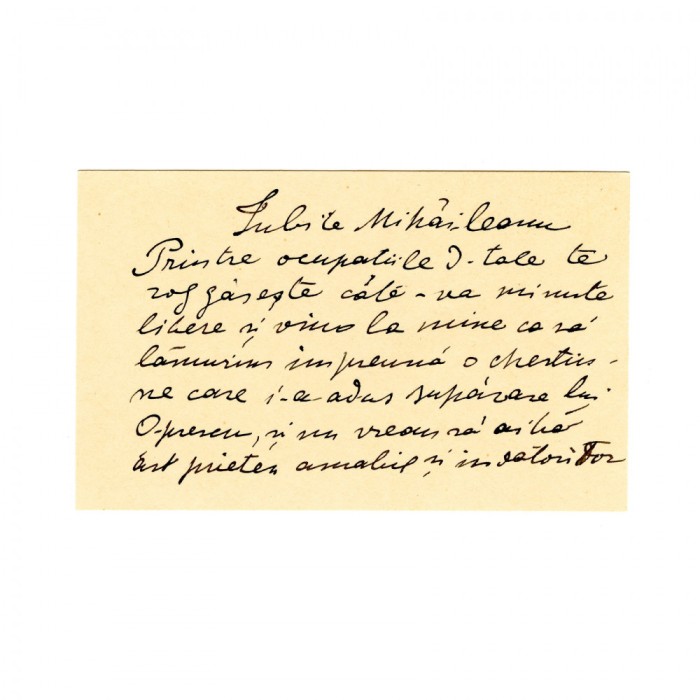 Iubite Mihăileanu
Printre ocupațiile D-tale te
rog găsește câte-va minute
libere și vino la mine ca să
lămurim împreună o chestiu-
ne care i-a adus supărare lui
Oprescu, și nu vreau să aibă
prieten amabil și îndatoritor